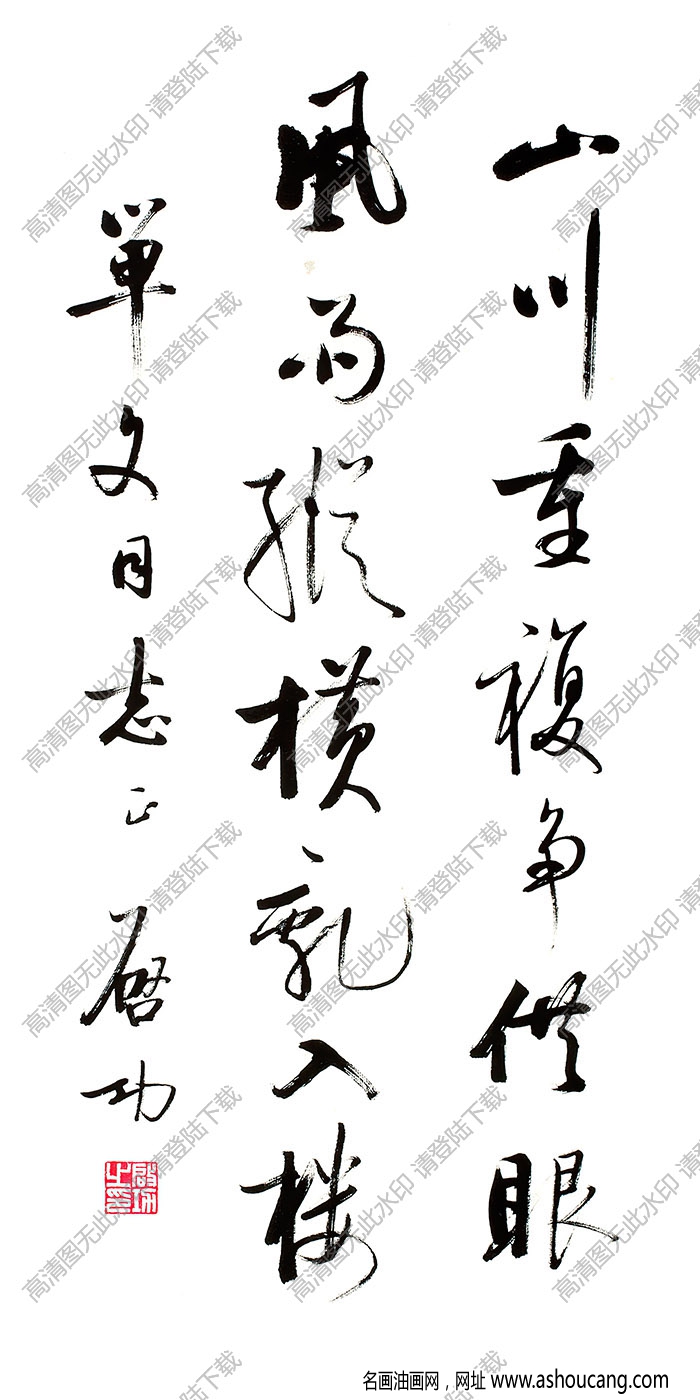 山川重複争供眼
風雨縱橫亂入樓
單文同志正
啟功
啟功之印
高清图无此水印 请登陆下载
名画油画网，网址 www.ashoucang.com